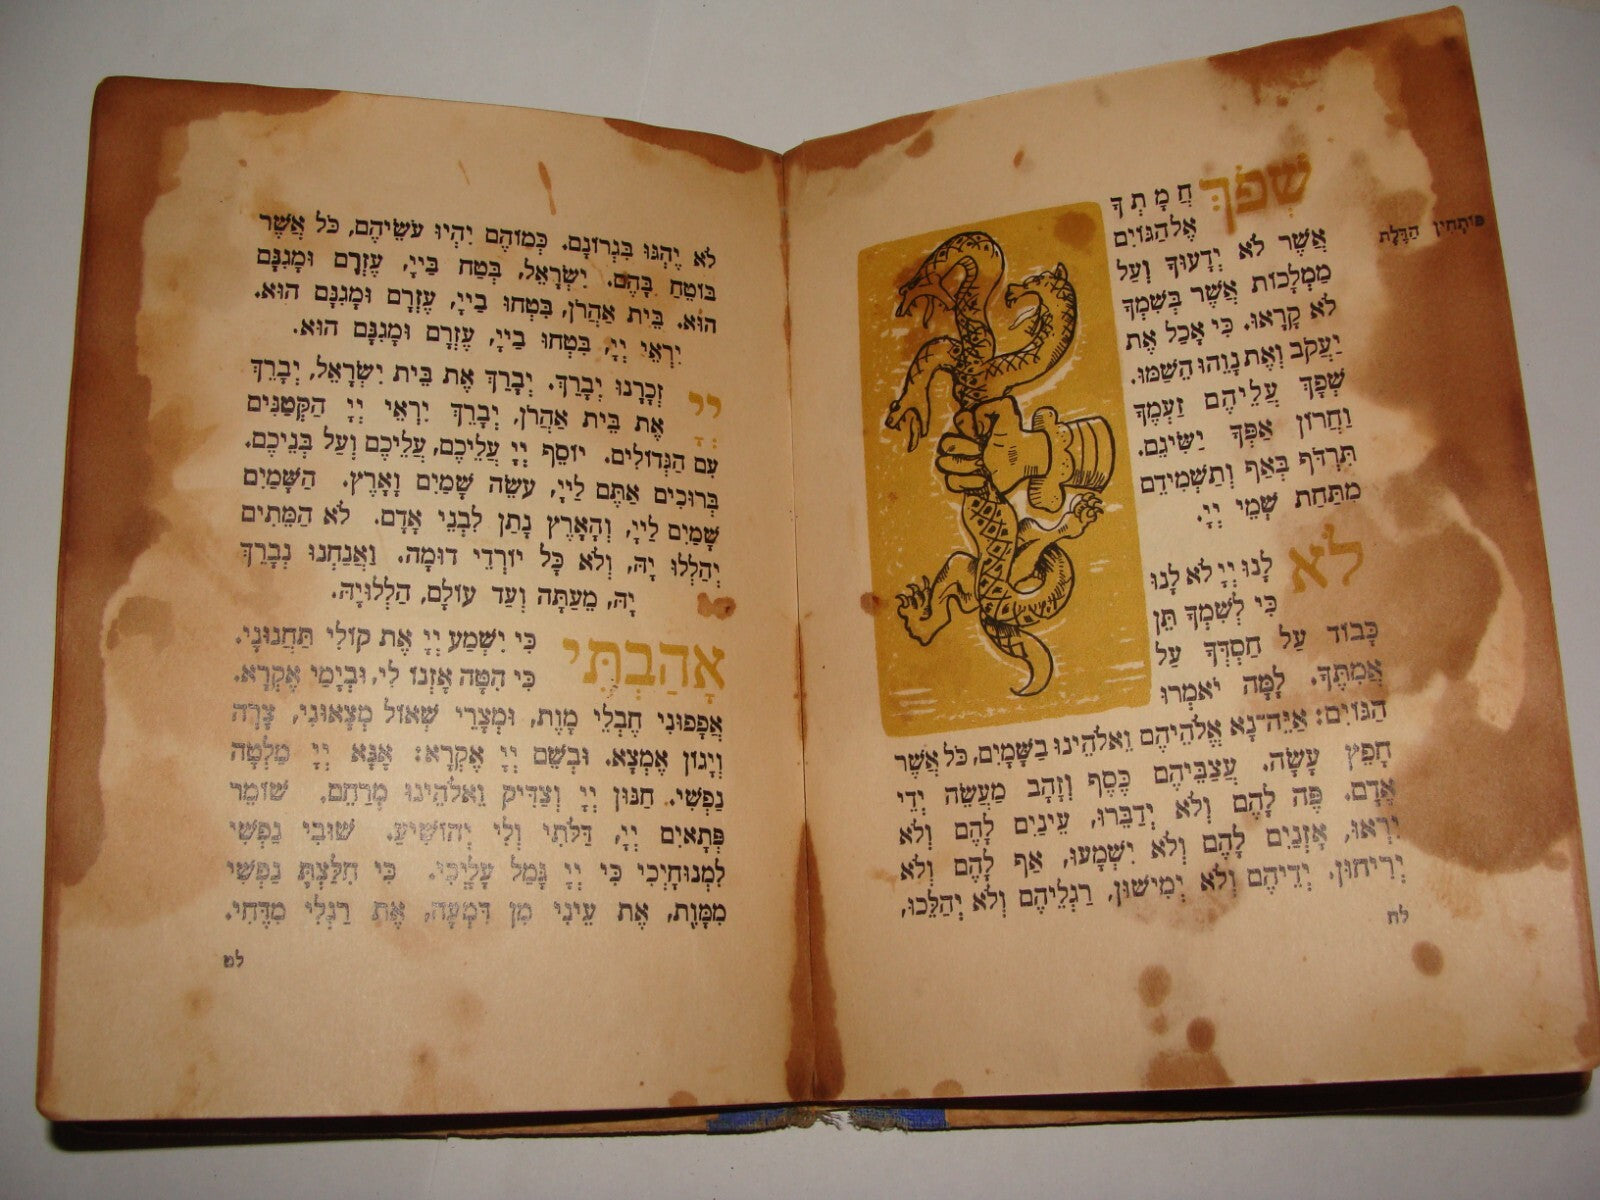 פותחין הדלת
שְׁפֹךְ חֲמָתְךָ
אֶל־הַגּוֹיִם
אֲשֶׁר לֹא יְדָעוּךָ וְעַל
מַמְלָכוֹת אֲשֶׁר בְּשִׁמְךָ
לֹא קָרָאוּ. כִּי אָכַל אֶת
יַעֲקֹב וְאֶת נָוֵהוּ הֵשַׁמּוּ.
שְׁפָךְ עֲלֵיהֶם זַעְמֶךָ
וַחֲרוֹן אַפְּךָ יַשִּׂיגֵם.
תִּרְדֹּף בְּאַף וְתַשְׁמִידֵם
מִתַּחַת שְׁמֵי יְיָ.
לֹא לָנוּ יְיָ לֹא לָנוּ
כִּי לְשִׁמְךָ תֵּן
כָּבוֹד עַל חַסְדְּךָ עַל
אֲמִתֶּךָ. לָמָּה יֹאמְרוּ
הַגּוֹיִם: אַיֵּה־נָא אֱלֹהֵיהֶם וֵאלֹהֵינוּ בַשָּׁמָיִם, כֹּל אֲשֶׁר
חָפֵץ עָשָׂה. עֲצַבֵּיהֶם כֶּסֶף וְזָהָב מַעֲשֵׂה יְדֵי
אָדָם. פֶּה לָהֶם וְלֹא יְדַבֵּרוּ, עֵינַיִם לָהֶם וְלֹא
יִרְאוּ, אָזְנַיִם לָהֶם וְלֹא יִשְׁמָעוּ, אַף לָהֶם וְלֹא
יְרִיחוּן. יְדֵיהֶם וְלֹא יְמִישׁוּן, רַגְלֵיהֶם וְלֹא יְהַלֵּכוּ,
לח
לֹא יֶהְגּוּ בִּגְרוֹנָם. כְּמוֹהֶם יִהְיוּ עֹשֵׂיהֶם, כֹּל אֲשֶׁר
בּוֹטֵחַ בָּהֶם. יִשְׂרָאֵל, בְּטַח בַּיְיָ, עֶזְרָם וּמָגִנָּם
הוּא. בֵּית אַהֲרֹן, בִּטְחוּ בַיְיָ, עֶזְרָם וּמָגִנָּם הוּא.
יִרְאֵי יְיָ, בִּטְחוּ בַיְיָ, עֶזְרָם וּמָגִנָּם הוּא.
יְיָ זְכָרָנוּ יְבָרֵךְ. יְבָרֵךְ אֶת בֵּית יִשְׂרָאֵל, יְבָרֵךְ
אֶת בֵּית אַהֲרֹן, יְבָרֵךְ יִרְאֵי יְיָ הַקְּטַנִּים
עִם הַגְּדוֹלִים. יוֹסֵף יְיָ עֲלֵיכֶם, עֲלֵיכֶם וְעַל בְּנֵיכֶם.
בְּרוּכִים אַתֶּם לַיְיָ, עֹשֵׂה שָׁמַיִם וָאָרֶץ. הַשָּׁמַיִם
שָׁמַיִם לַיְיָ, וְהָאָרֶץ נָתַן לִבְנֵי אָדָם. לֹא הַמֵּתִים
יְהַלְלוּ יָהּ, וְלֹא כָּל יוֹרְדֵי דוּמָה. וַאֲנַחְנוּ נְבָרֵךְ
יָהּ, מֵעַתָּה וְעַד עוֹלָם, הַלְלוּיָהּ.
אָהַבְתִּי כִּי יִשְׁמַע יְיָ אֶת קוֹלִי תַּחֲנוּנָי.
כִּי הִטָּה אָזְנוֹ לִי, וּבְיָמַי אֶקְרָא.
אֲפָפוּנִי חֶבְלֵי מָוֶת, וּמְצָרֵי שְׁאוֹל מְצָאוּנִי, צָרָה
וְיָגוֹן אֶמְצָא. וּבְשֵׁם יְיָ אֶקְרָא: אָנָּא יְיָ מַלְּטָה
נַפְשִׁי. חַנּוּן יְיָ וְצַדִּיק וֵאלֹהֵינוּ מְרַחֵם. שׁוֹמֵר
פְּתָאיִם יְיָ, דַּלּוֹתִי וְלִי יְהוֹשִׁיעַ. שׁוּבִי נַפְשִׁי
לִמְנוּחָיְכִי כִּי יְיָ גָּמַל עָלָיְכִי. כִּי חִלַּצְתָּ נַפְשִׁי
מִמָּוֶת, אֶת עֵינִי מִן דִּמְעָה, אֶת רַגְלִי מִדֶּחִי.
לט